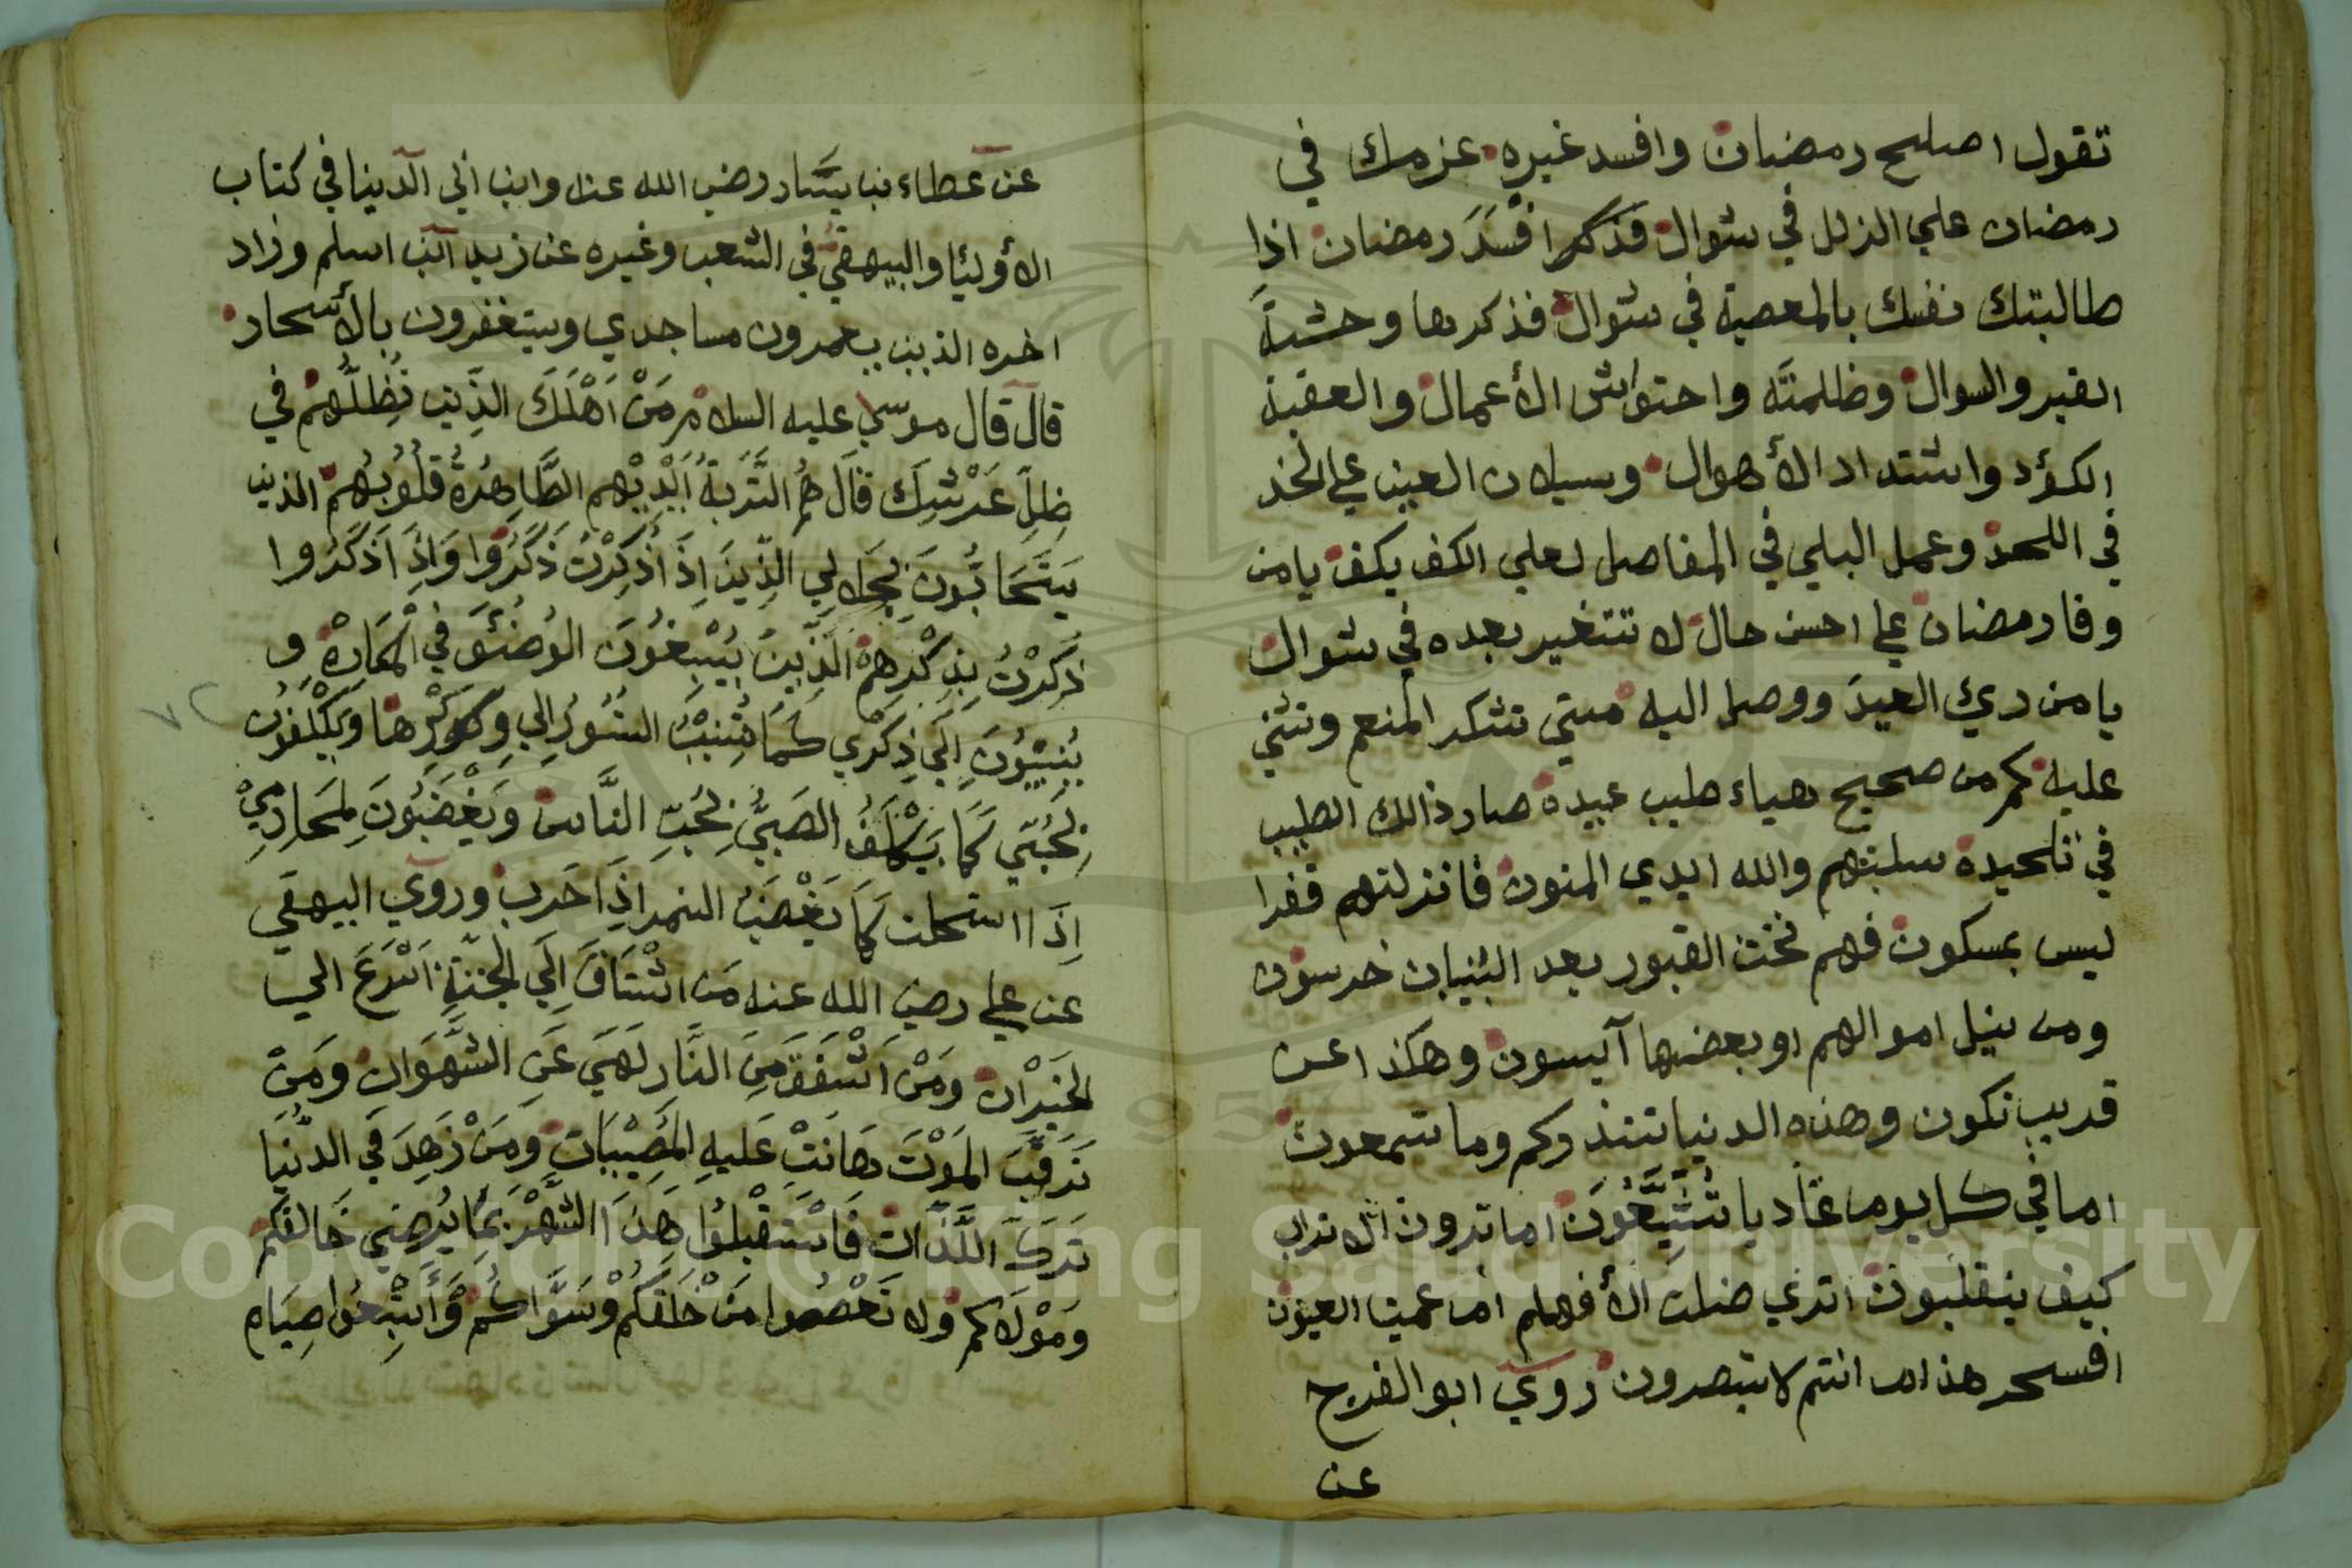 تقول اصلح رمضان وافسد غيره عزمك في
رمضان علي الزلل في شوال فذكرا افْسَدَ رمضان اذا
طالبتك نفسك بالمعصية في شوال فذكرها وحشة
القبر والسوال وظلمته واحتواش الأعمال والعقبة
الكؤد واشتداد الأهوال وسيلان العين علي الخد
في اللحد وعمل البلي في المفاصل لعلي الكف يكف يا من
وفا رمضان علي احسن حال لا تتغير بعده في شوال
يا من رئ العيد ووصل اليه متي تشكر المنعم وتثني
عليه كم من صحيح هياء طيب عبيدة صار ذالك الطيب
في تلحيده سلبتهم والله ايدي المنون فانزلتهم قفرا
ليس بمسكون فهم تحت القبور بعد البنيان خرسون
ومن نيل اموالهم او بعضها آيسون وهكذا عن
قريب تكون وهذه الدنيا تنذركم وما تسمعون
اما في كل يوم غاديا تُشَيِّعُونَ اما ترون الاتراب
كيف ينقلبون اتري ضلت الأفهام ام عميت العيون
افسحر هذا ام انتم لا تبصرون روي ابو الفرج
عن
عن عطاء بن يسار رضي الله عنه وابن ابي الدينا في كتاب
الأوليا والبيهقي في الشعب وغيره عن زيد ابن اسلم وزاد
اخره الذين يعمرون مساجدي ويستغفرون بالأسحار
قال قال موسي عليه السلام مَنْ اَهْلَكَ الذِين تُظِلُّهُمْ في
ظِلِّ عَرْشِكَ قَالَ هُمُ التَّرِبَةُ اَيْدِيْهِم الطَّاهِرَةُ قُلُوْبُهُمْ الذين
يَتَحَابُّونَ بِجَلَالِي الذِّينَ اِذَا ذُكِرْتُ ذَكَرُوا وَاِذَا ذَكَرُوا
ذُكِرْتُ بِذِكْرِهِمْ الَّذِينَ يُسْبِغُونَ الوُضُوْءَ فِي الْمَكَارِهْ وِ
يُنِيبُونَ اِلَي ذِكْرِي كَمَا تُنِيْبُ النُّسُورُ اِلي وِكْوْرِهَا وَيَكْلَفُوْن
بِحُبِّي كَمَا يَكْلَفُ الصَّبِيُّ بِحُبِّ النَّاسْ وَيَغْضَبُوْنَ لِمَحَارِمِيْ
اِذَا استحلت كَمَا يَغْضَبُ النمر اِذَا حَرب وروي البيهقي
عن علي رضي الله عنه مَن اشْتَاقَ اِلَي الجَنَّةِ اَسْرَعَ الي
الخَيْرَات وَمَنْ اَشْفَقَ مِنَ النَّار لَهِيَ عَنِ الشَّهَوَاتِ ومَنْ
تَرَقَّبَ المَوْتَ هَانَتْ عَليهِ المُصِيْبَاتِ وَمَنْ زَهِدَ فِي الدُّنْيَا
تَرَكَ اللَّذَّاتِ فَاسْتَقْبِلُوا هَذَا الشَّهْرَ بِمَا يُرضِي خَالِقَكُمْ
وَمَوْلَاكُم ولا تعصوا مَنْ خَلَقَكُمْ وَسَوَّاكُمْ وَأَتْبِعُوا صِيَام
٧٢
Copyright © King Saud University